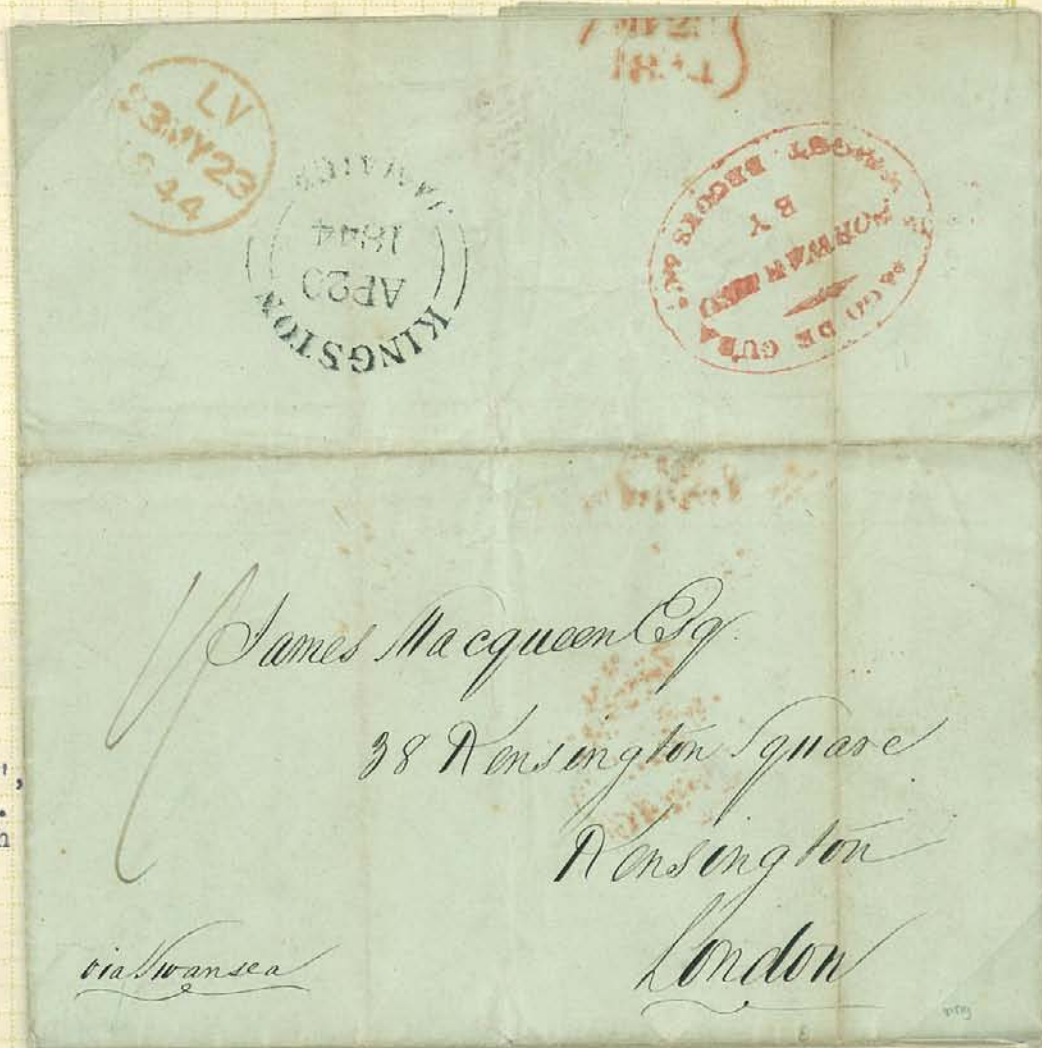 LV
23MY23
1844
KINGSTON
AP20
1844
JAMAICA
FORWARDED
BY
DE CUBA
James Macqueen Esq.
38 Kensington Square
Kensington
London
via Swansea